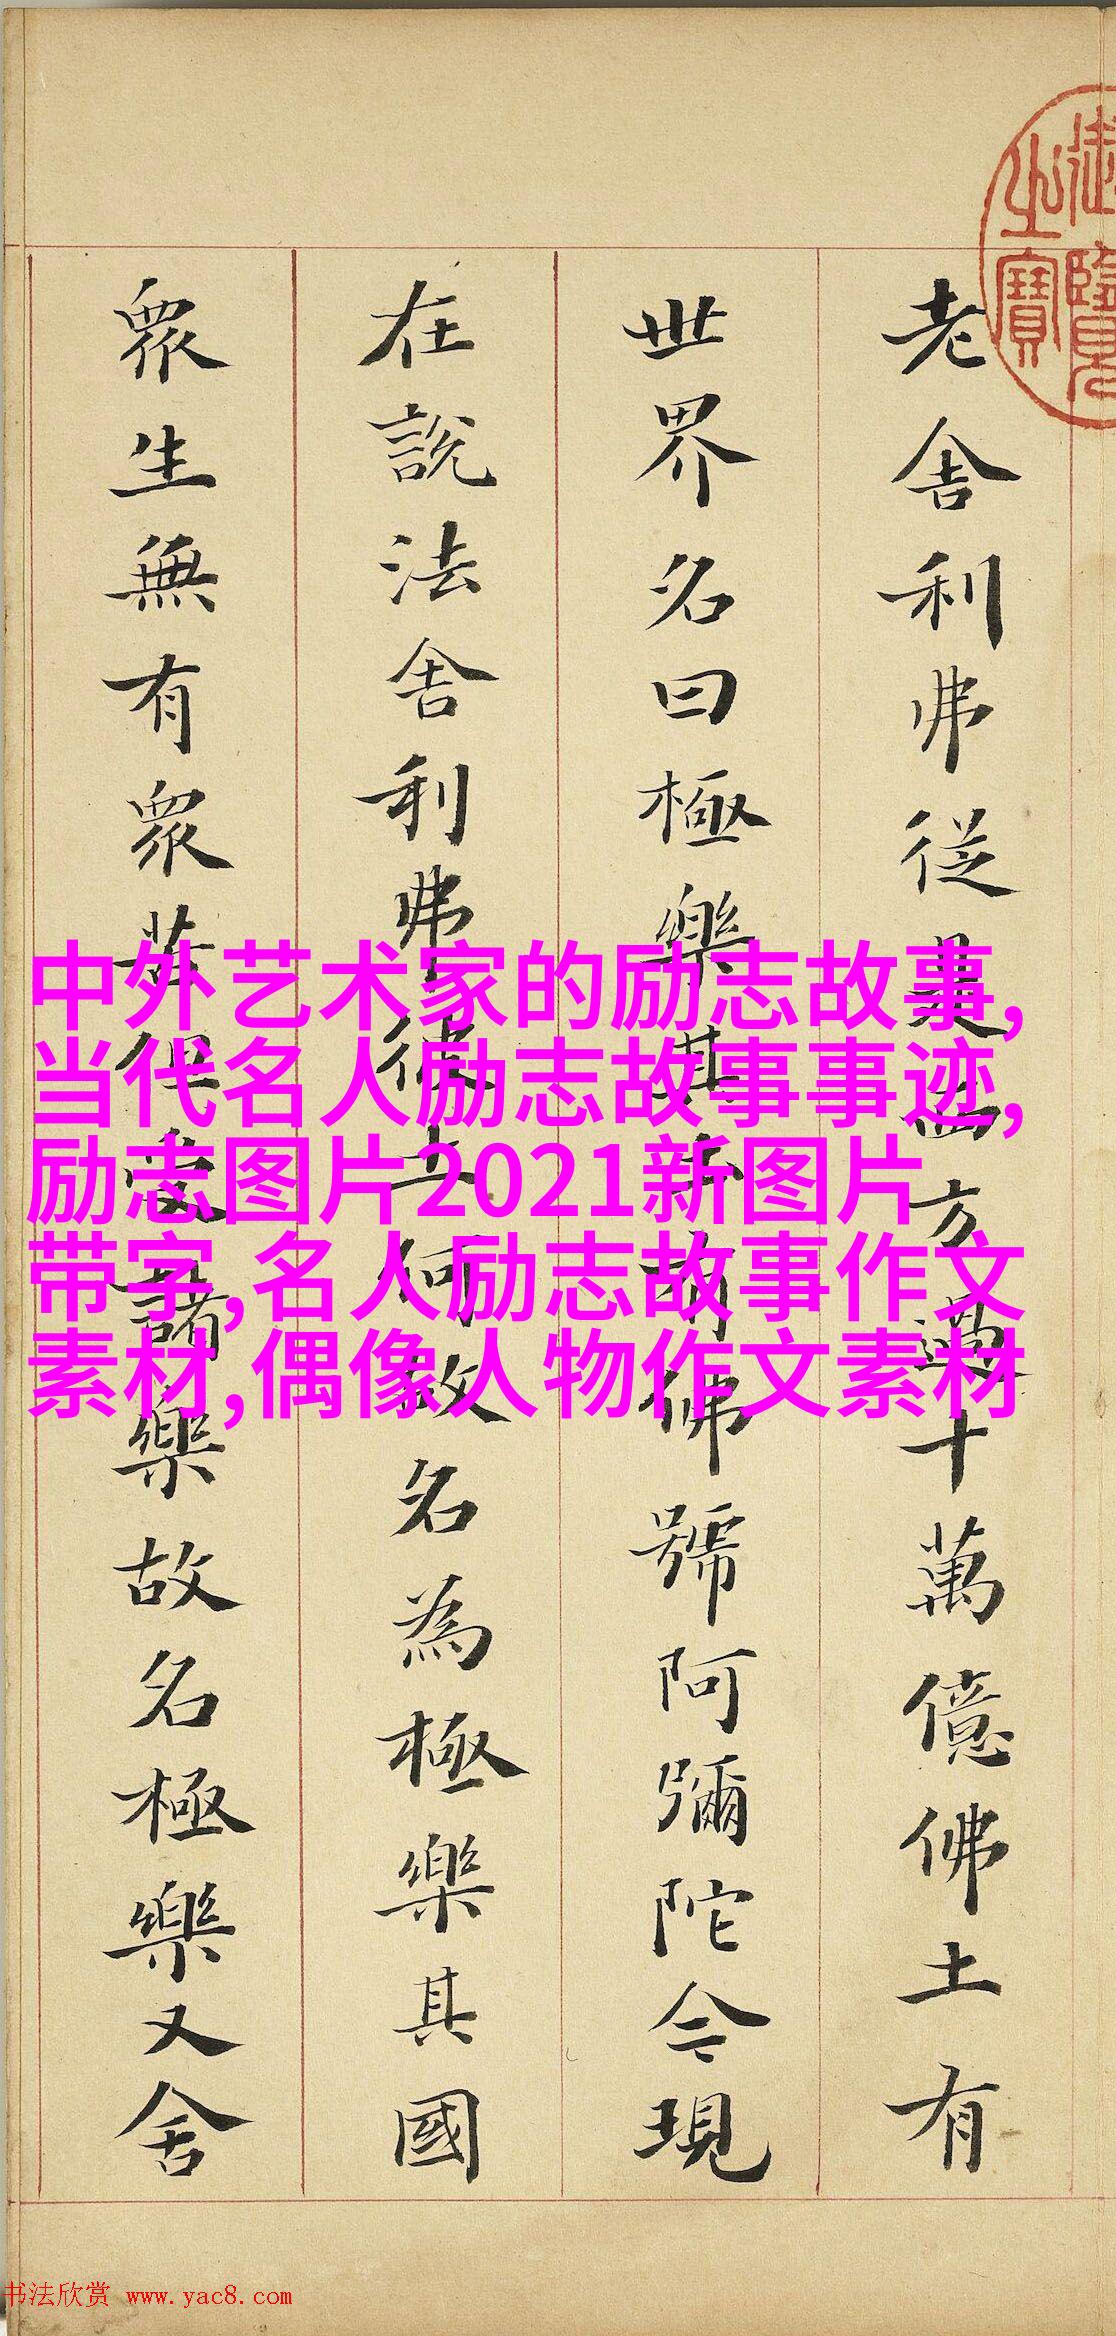 御覽之寶
老舍利弗從是西方過十萬億佛土有
世界名曰極樂其土有佛號阿彌陀今現
在說法舍利弗彼土何故名為極樂其國
眾生無有眾苦但受諸樂故名極樂又舍
中外艺术家的励志故事,
当代名人励志故事事迹,
励志图片2021新图片
带字,名人励志故事作文
素材,偶像人物作文素材
书法欣赏 www.yac8.com